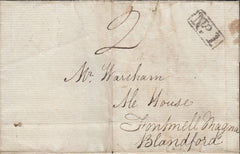 2
Mr. Wareham
Ale House
Fontmell Magna
Blandford
No. 1